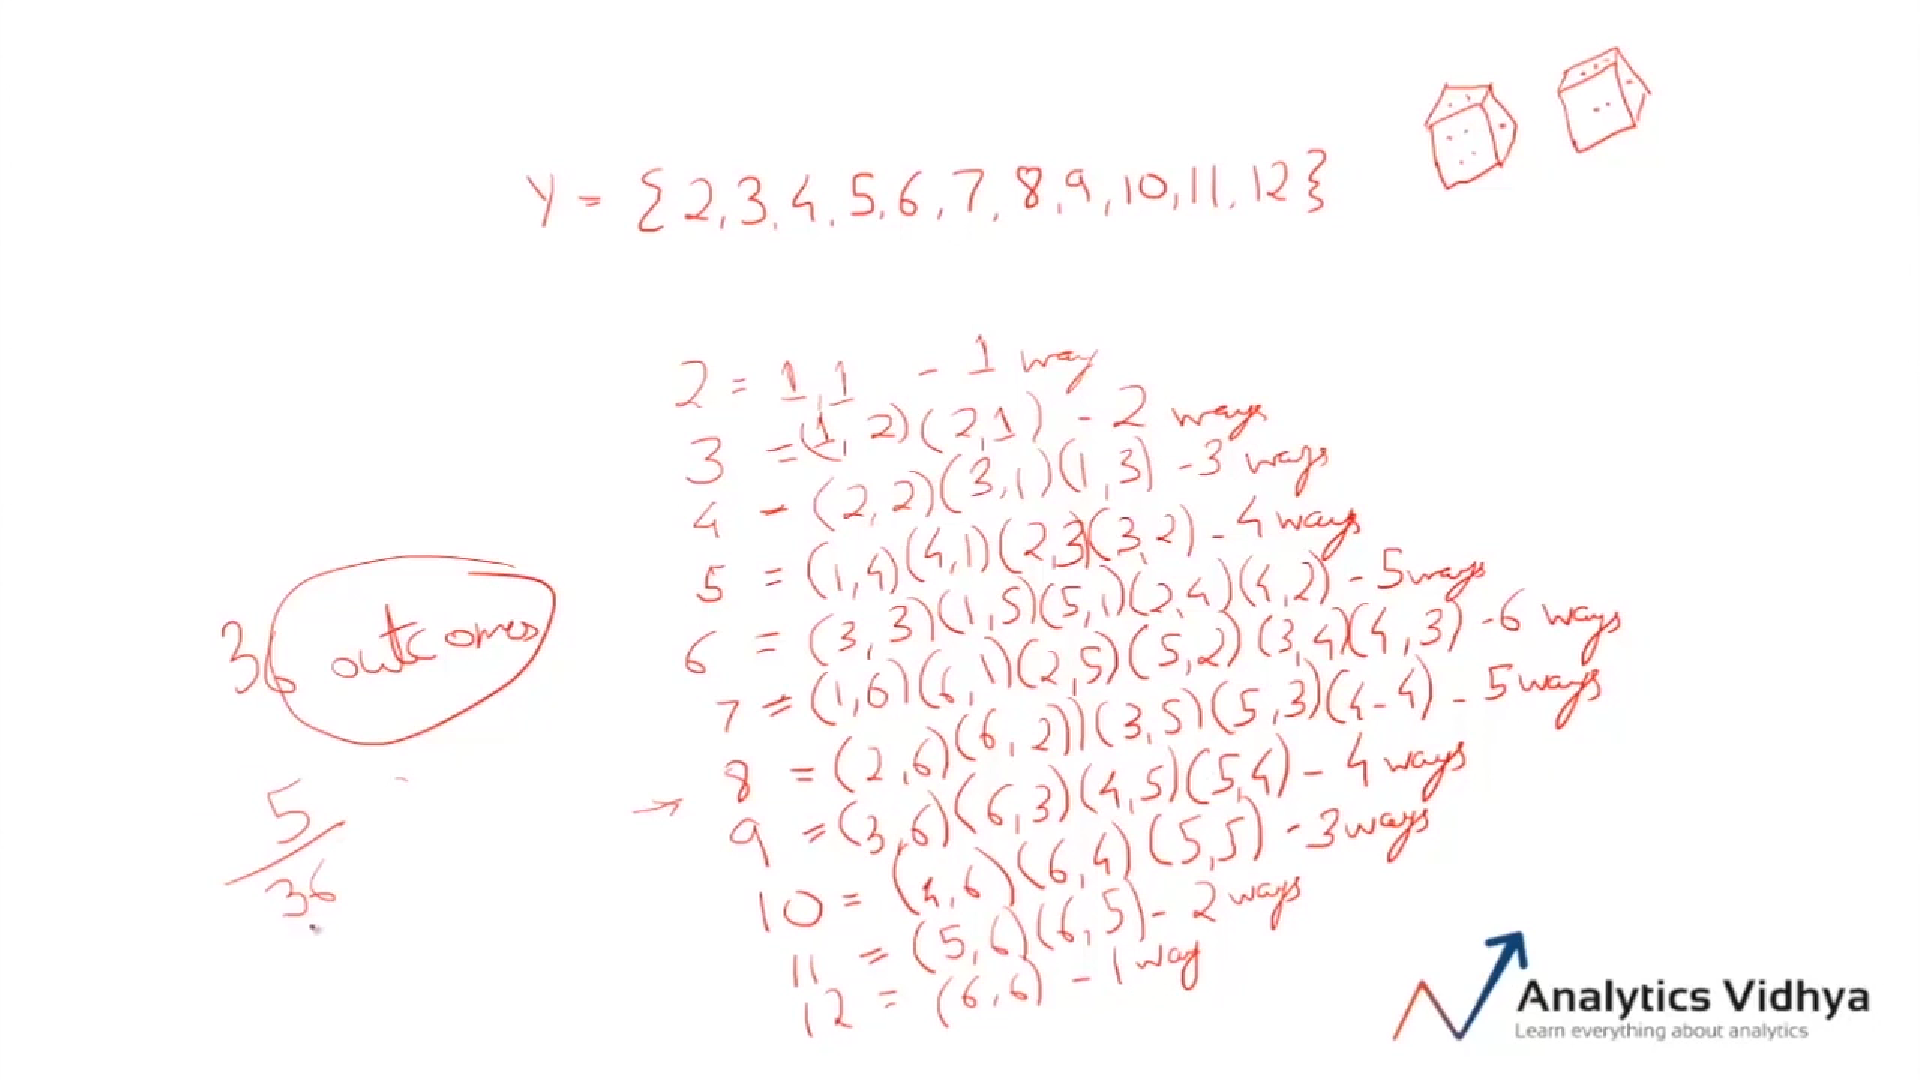 Y = {2,3,4,5,6,7,8,9,10,11,12}
2 = 1,1 - 1 way
3 = (1,2)(2,1) - 2 ways
4 - (2,2)(3,1)(1,3) - 3 ways
5 = (1,4)(4,1)(2,3(3,2) - 4 ways
6 = (3,3)(1,5)(5,1)(2,4)(4,2) - 5 ways
7 = (1,6)(6,1)(2,5)(5,2)(3,4)(4,3) - 6 ways
8 = (2,6)(6,2))(3,5)(5,3)(4-4) - 5 ways
→ 9 = (3,6)(6,3)(4,5)(5,4) - 4 ways
10 = (4,6)(6,4)(5,5) - 3 ways
11 = (5,6)(6,5) - 2 ways
12 = (6,6) - 1 way
36 outcomes
5/36
Analytics Vidhya
Learn everything about analytics